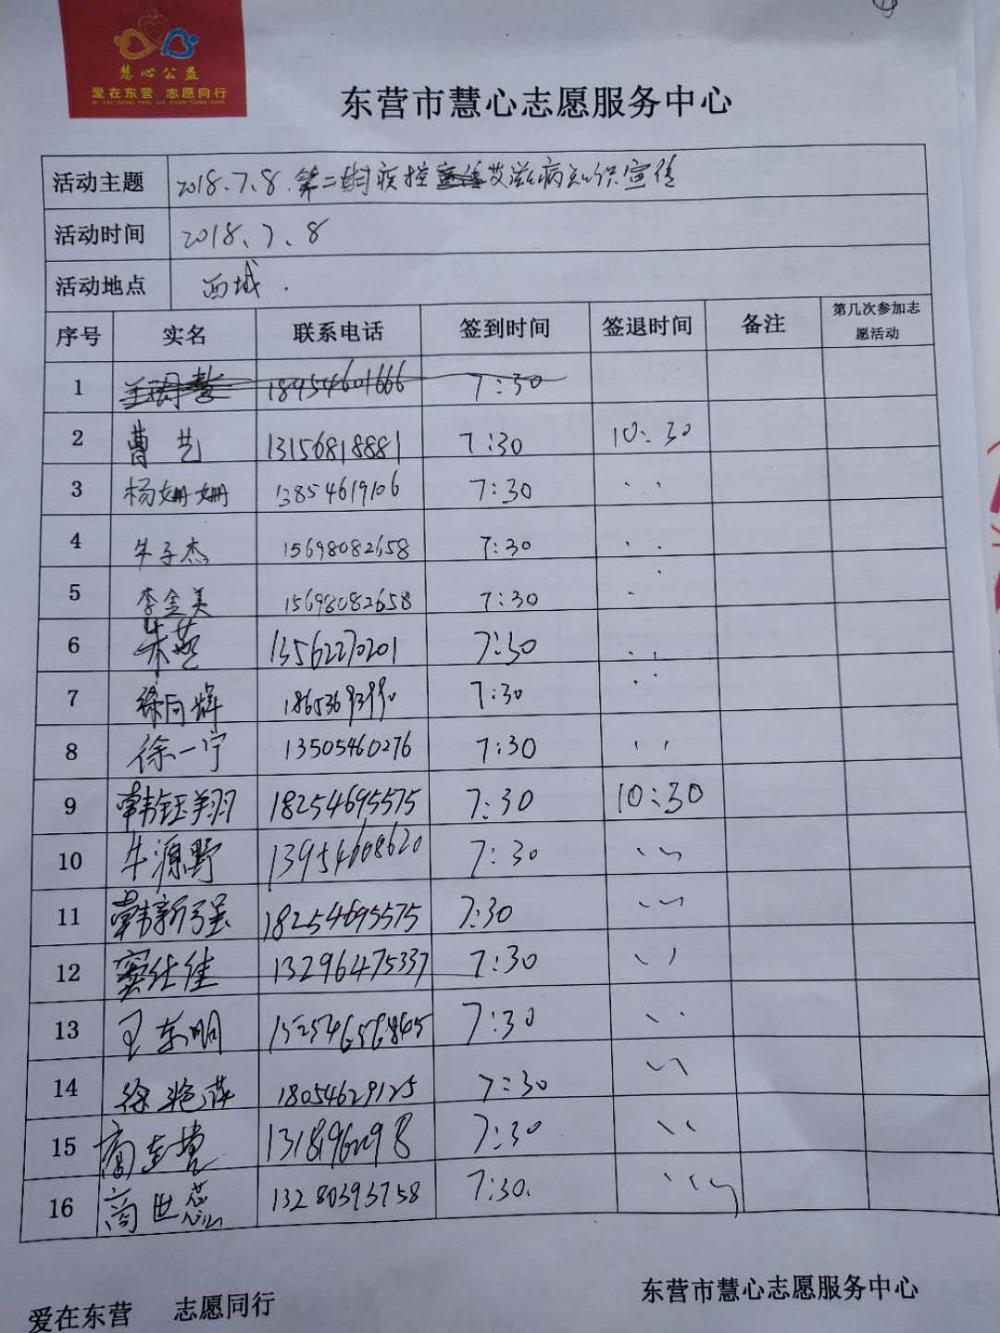 慧心公益
爱在东营 志愿同行
东营市慧心志愿服务中心
活动主题 2018.7.8.第二期疾控艾滋病知识宣传
活动时间 2018、7、8
活动地点 西城.
序号 实名 联系电话 签到时间 签退时间 备注 第几次参加志愿活动
1 18954601666 7:30
2 曹艺 13156818881 7:30 10:30
3 杨姗姗 13854619106 7:30 ..
4 牛子杰 15698082658 7:30 ..
5 李金美 15698082658 7:30 ..
6 朱燕 13562270201 7:30 ..
7 徐向辉 7:30 ..
8 徐一宁 13505460276 7:30 ..
9 韩钰翔 18254695575 7:30 10:30
10 牛源野 13954608620 7:30 ..
11 韩新强 18254695575 7:30 ..
12 窦仕佳 13296475337 7:30 ..
13 王东明 7:30 ..
14 徐艳萍 18054629125 7:30 ..
15 7:30 ..
16 商世蕊 13280393758 7:30. ..
爱在东营 志愿同行
东营市慧心志愿服务中心